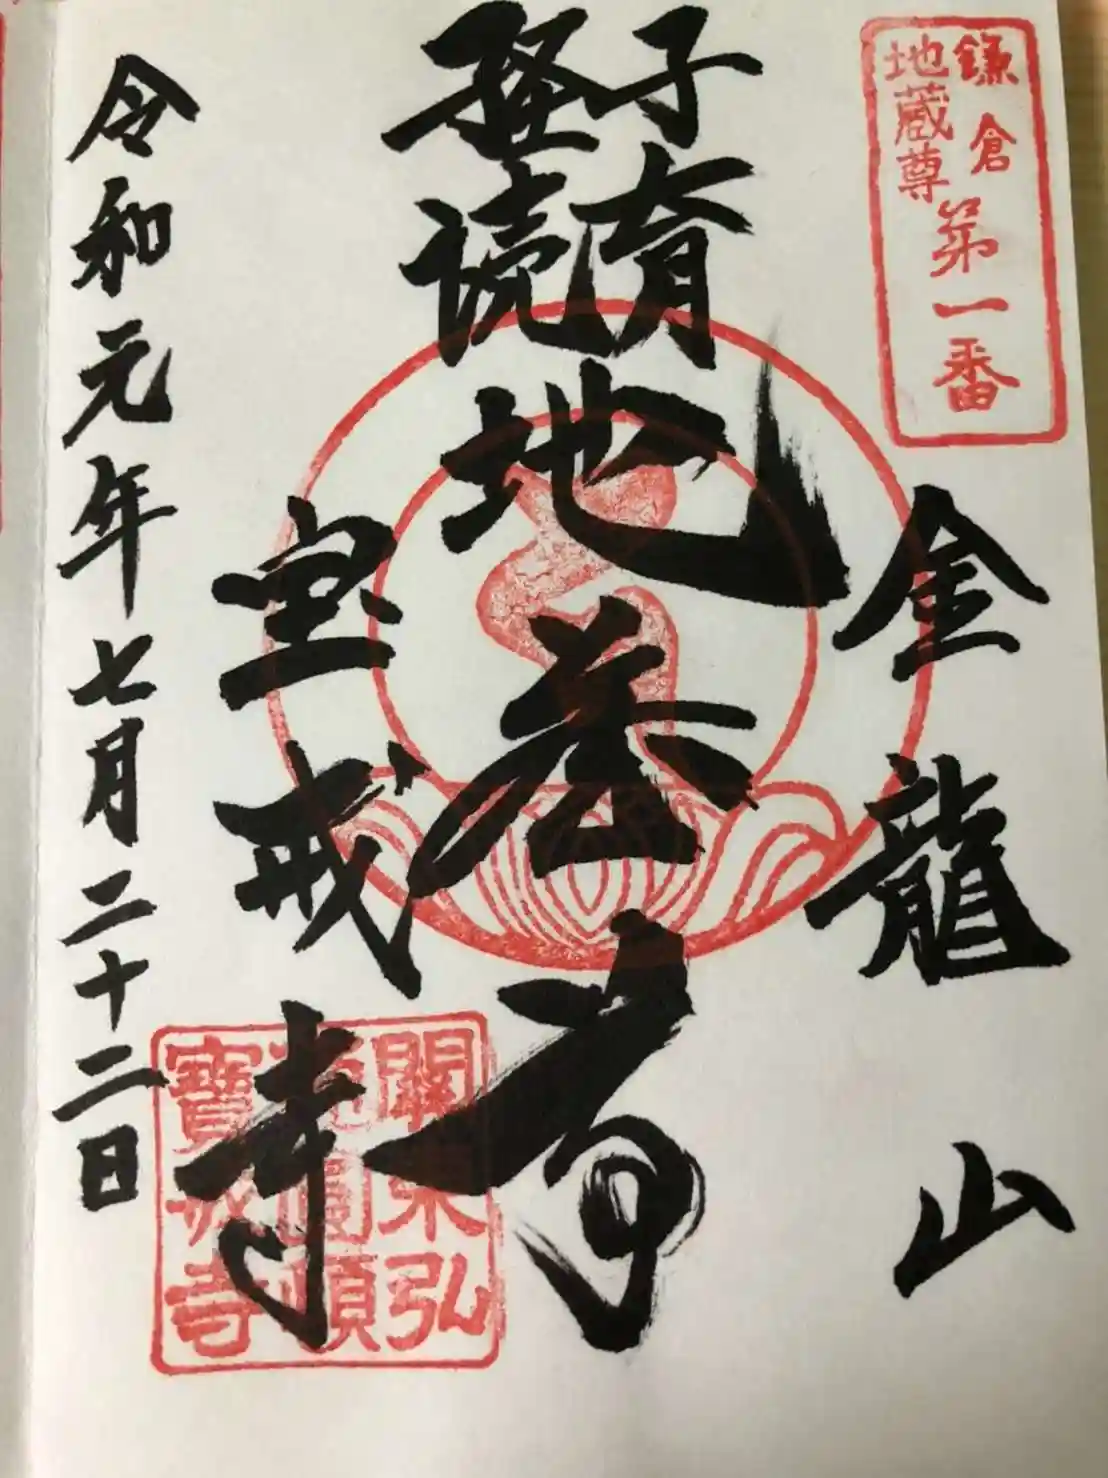 鎌倉
地蔵尊
第一番
金龍山
子育
経読
地蔵尊
宝戒寺
令和元年七月二十二日
關東弘
通圓頓
寶戒寺